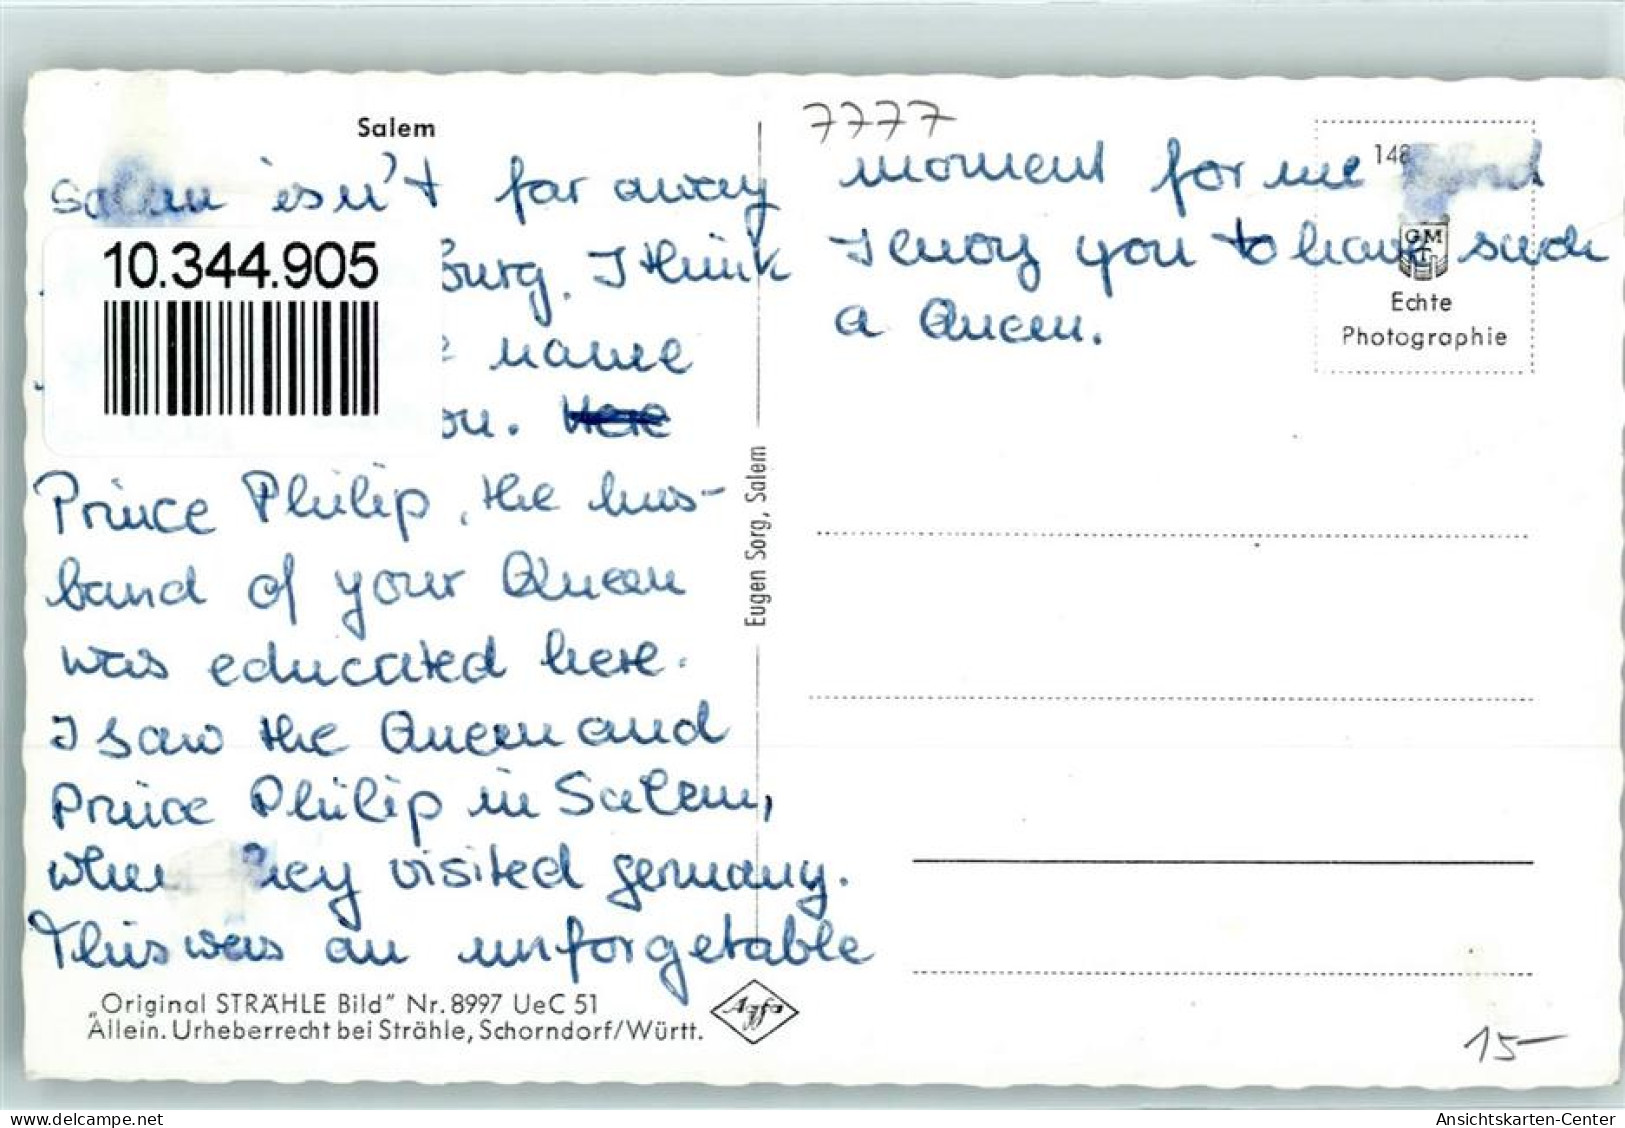 Salem
Salem isn't far away
burg. I think
name
Here
Prince Philip, the hus-
band of your Queen
was educated here.
I saw the Queen and
Prince Philip in Salem,
when they visited germany.
This was an unforgetable
„Original STRÄHLE Bild" Nr. 8997 UeC 51
Allein. Urheberrecht bei Strähle, Schorndorf/Württ.
Agfa
10.344.905
Eugen Sorg, Salem
7777
moment for me
I envy you to have such
a Queen.
148
GM
Echte
Photographie
15-
Ansichtskarten-Center